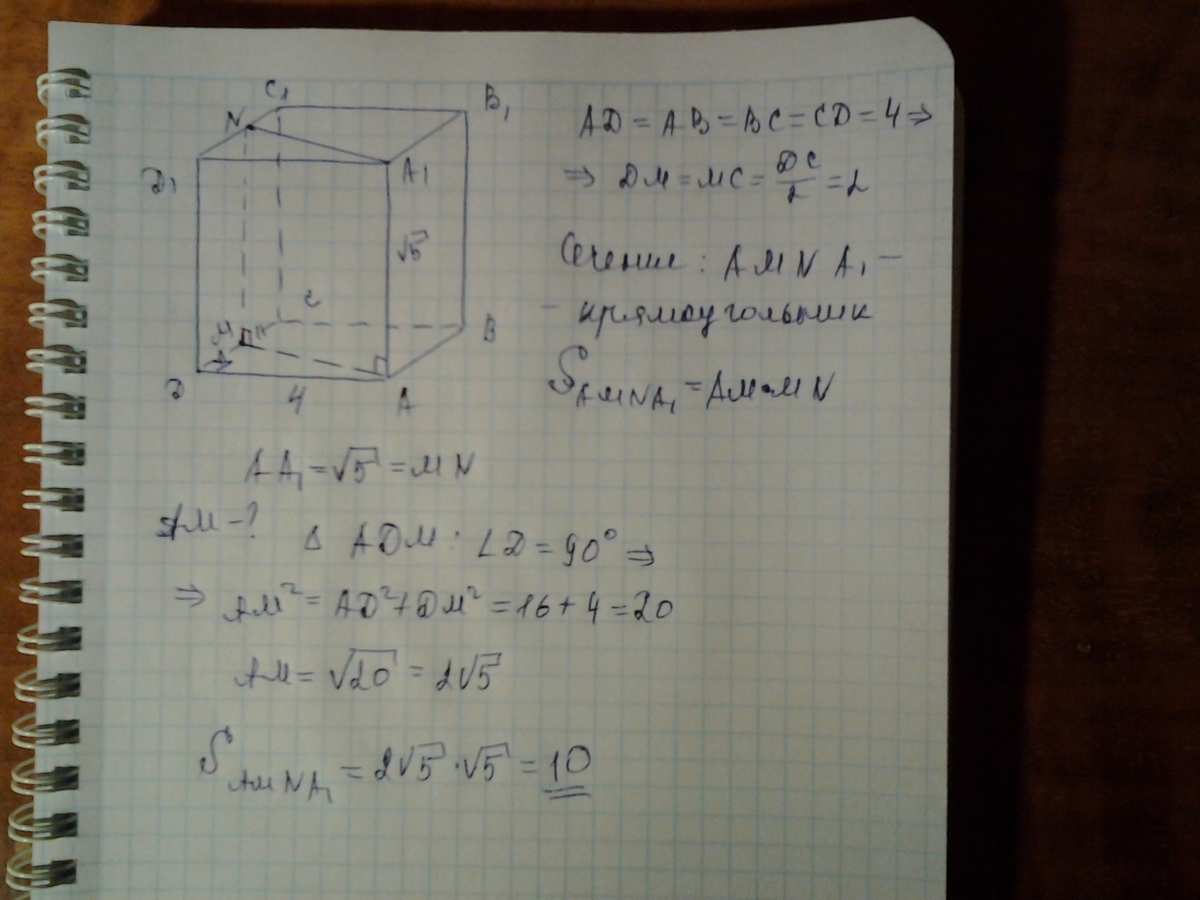 C₁
N
B₁
D₁
A₁
√5
C
M
B
D
4
A
AD = AB = BC = CD = 4 ⇒
⇒ DM = MC = DC/2 = 2
Сечение: AMNA₁ –
– прямоугольник
S_AMNA₁ = AM·MN
AA₁ = √5 = MN
AM – ?
Δ ADM: ∠D = 90° ⇒
⇒ AM² = AD² + DM² = 16 + 4 = 20
AM = √20 = 2√5
S_AMNA₁ = 2√5 · √5 = 10